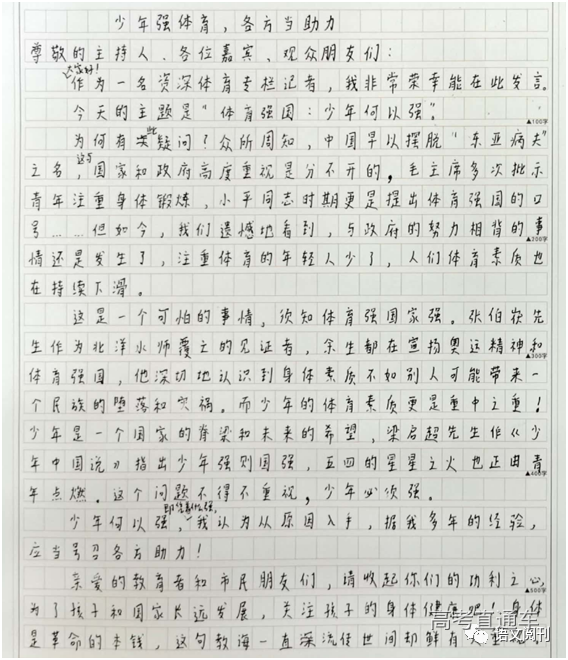 少年强体育，各方当助力
尊敬的主持人、各位嘉宾、观众朋友们：
大家好！
作为一名资深体育专栏记者，我非常荣幸能在此发言。
今天的主题是“体育强国：少年何以强”。
▲100字
为何有此疑问？众所周知，中国早以摆脱“东亚病夫”
之名，这与国家和政府高度重视是分不开的，毛主席多次批示
青年注重身体锻炼，小平同志时期更是提出体育强国的口
号……但如今，我们遗憾地看到，与政府的努力相背的事
▲200字
情还是发生了，注重体育的年轻人少了，人们体育素质也
在持续下滑。
这是一个可怕的事情，须知体育强国家强。张伯苓先
生作为北洋水师覆亡的见证者，余生都在宣扬奥运精神和
▲300字
体育强国，他深切地认识到身体素质不如别人可能带来一
个民族的堕落和灾祸。而少年的体育素质更是重中之重！
少年是一个国家的脊梁和未来的希望，梁启超先生作《少
年中国说》指出少年强则国强，五四的星星之火也正由青
▲400字
年点燃。这个问题不得不重视，少年必须强。
少年何以强，我认为从原因入手，据我多年的经验，
应当号召各方助力！
亲爱的教育者和市民朋友们，请收起你们的功利之心，
▲500字
为了孩子和国家长远发展，关注孩子的身体健康吧！身体
是革命的本钱，这句教诲一直深流传世间却鲜有
高考直通车
语文周刊